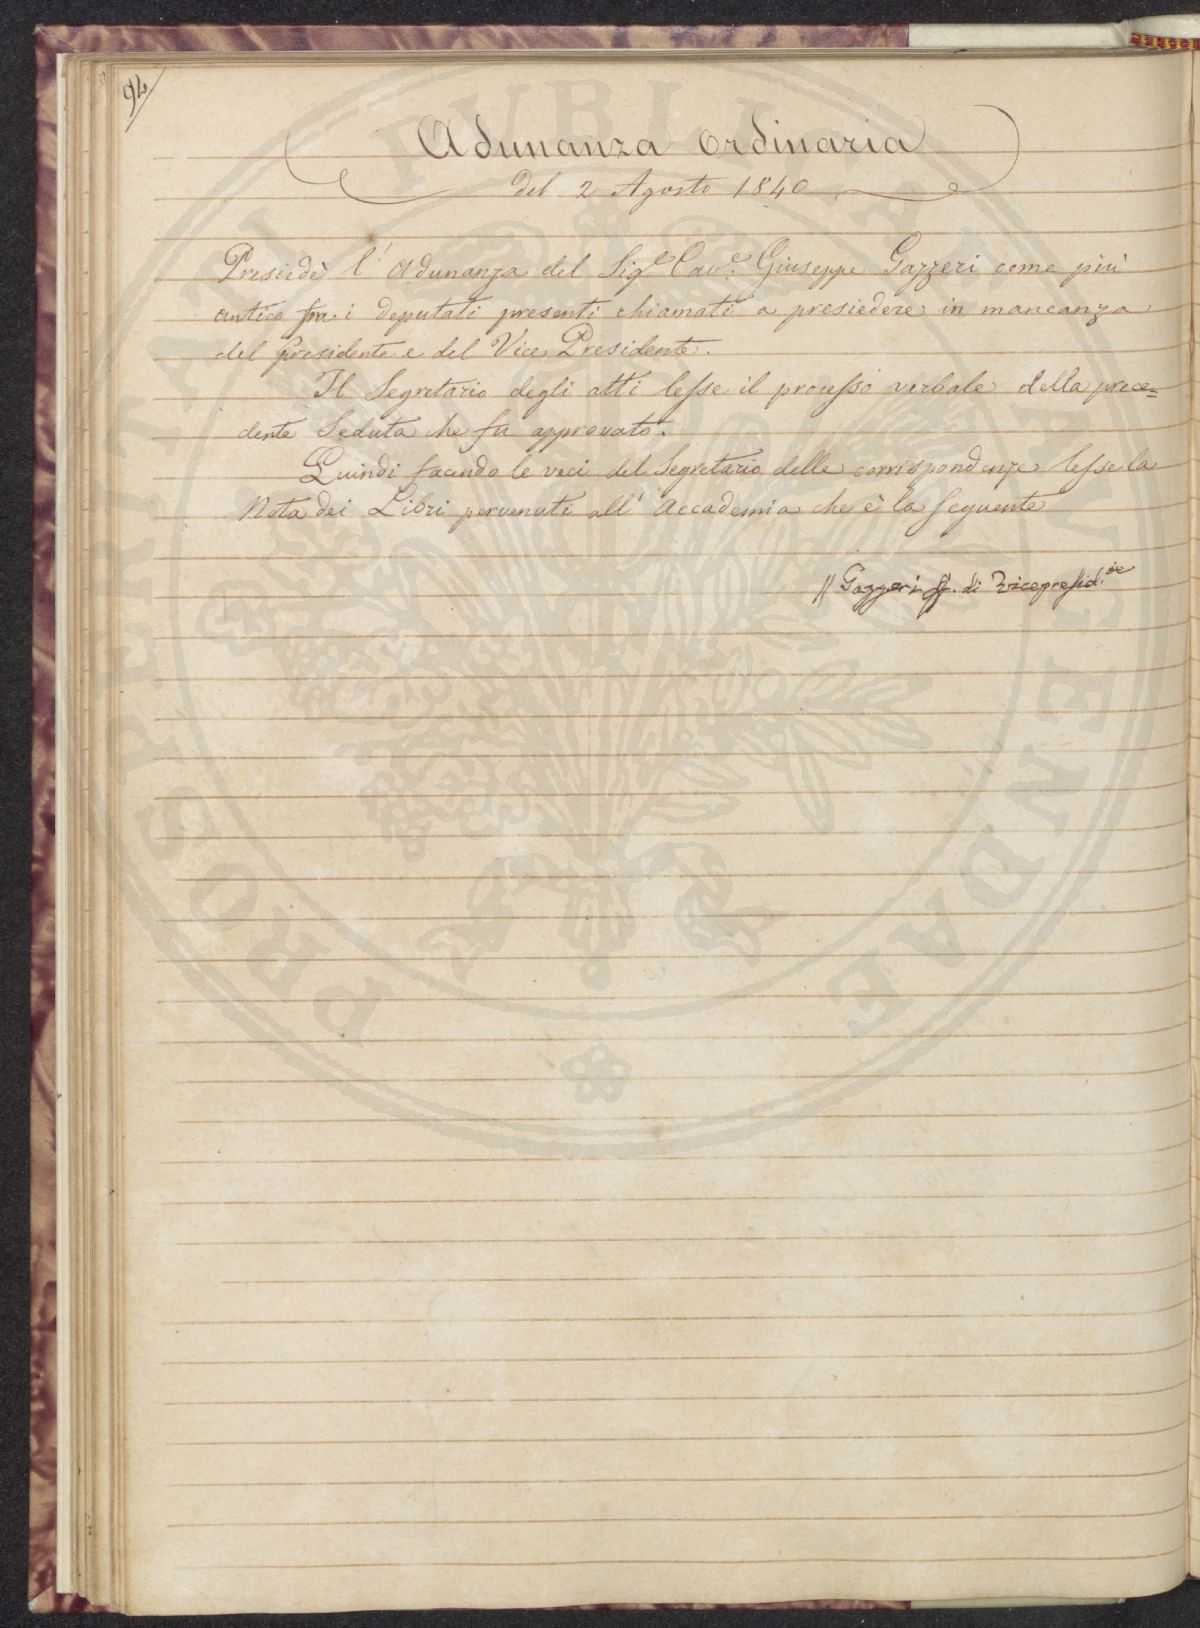 92
Adunanza ordinaria
del 2 Agosto 1840
Presiedè l'Adunanza del Sig.e Cav.e Giuseppe Gazzeri come più
antico fra i deputati presenti chiamati a presiedere in mancanza
del presidente e del Vice Presidente.
Il Segretario degli atti lesse il processo verbale della prece=
dente Seduta che fu approvato.
Quindi facendo le veci del Segretario delle corrispondenze lesse la
Nota dei Libri pervenuti all'Accademia che è la seguente
// Gazzeri ff. di Vicepresid.te
PROSPERITATI PVBLICAE AVGENDAE